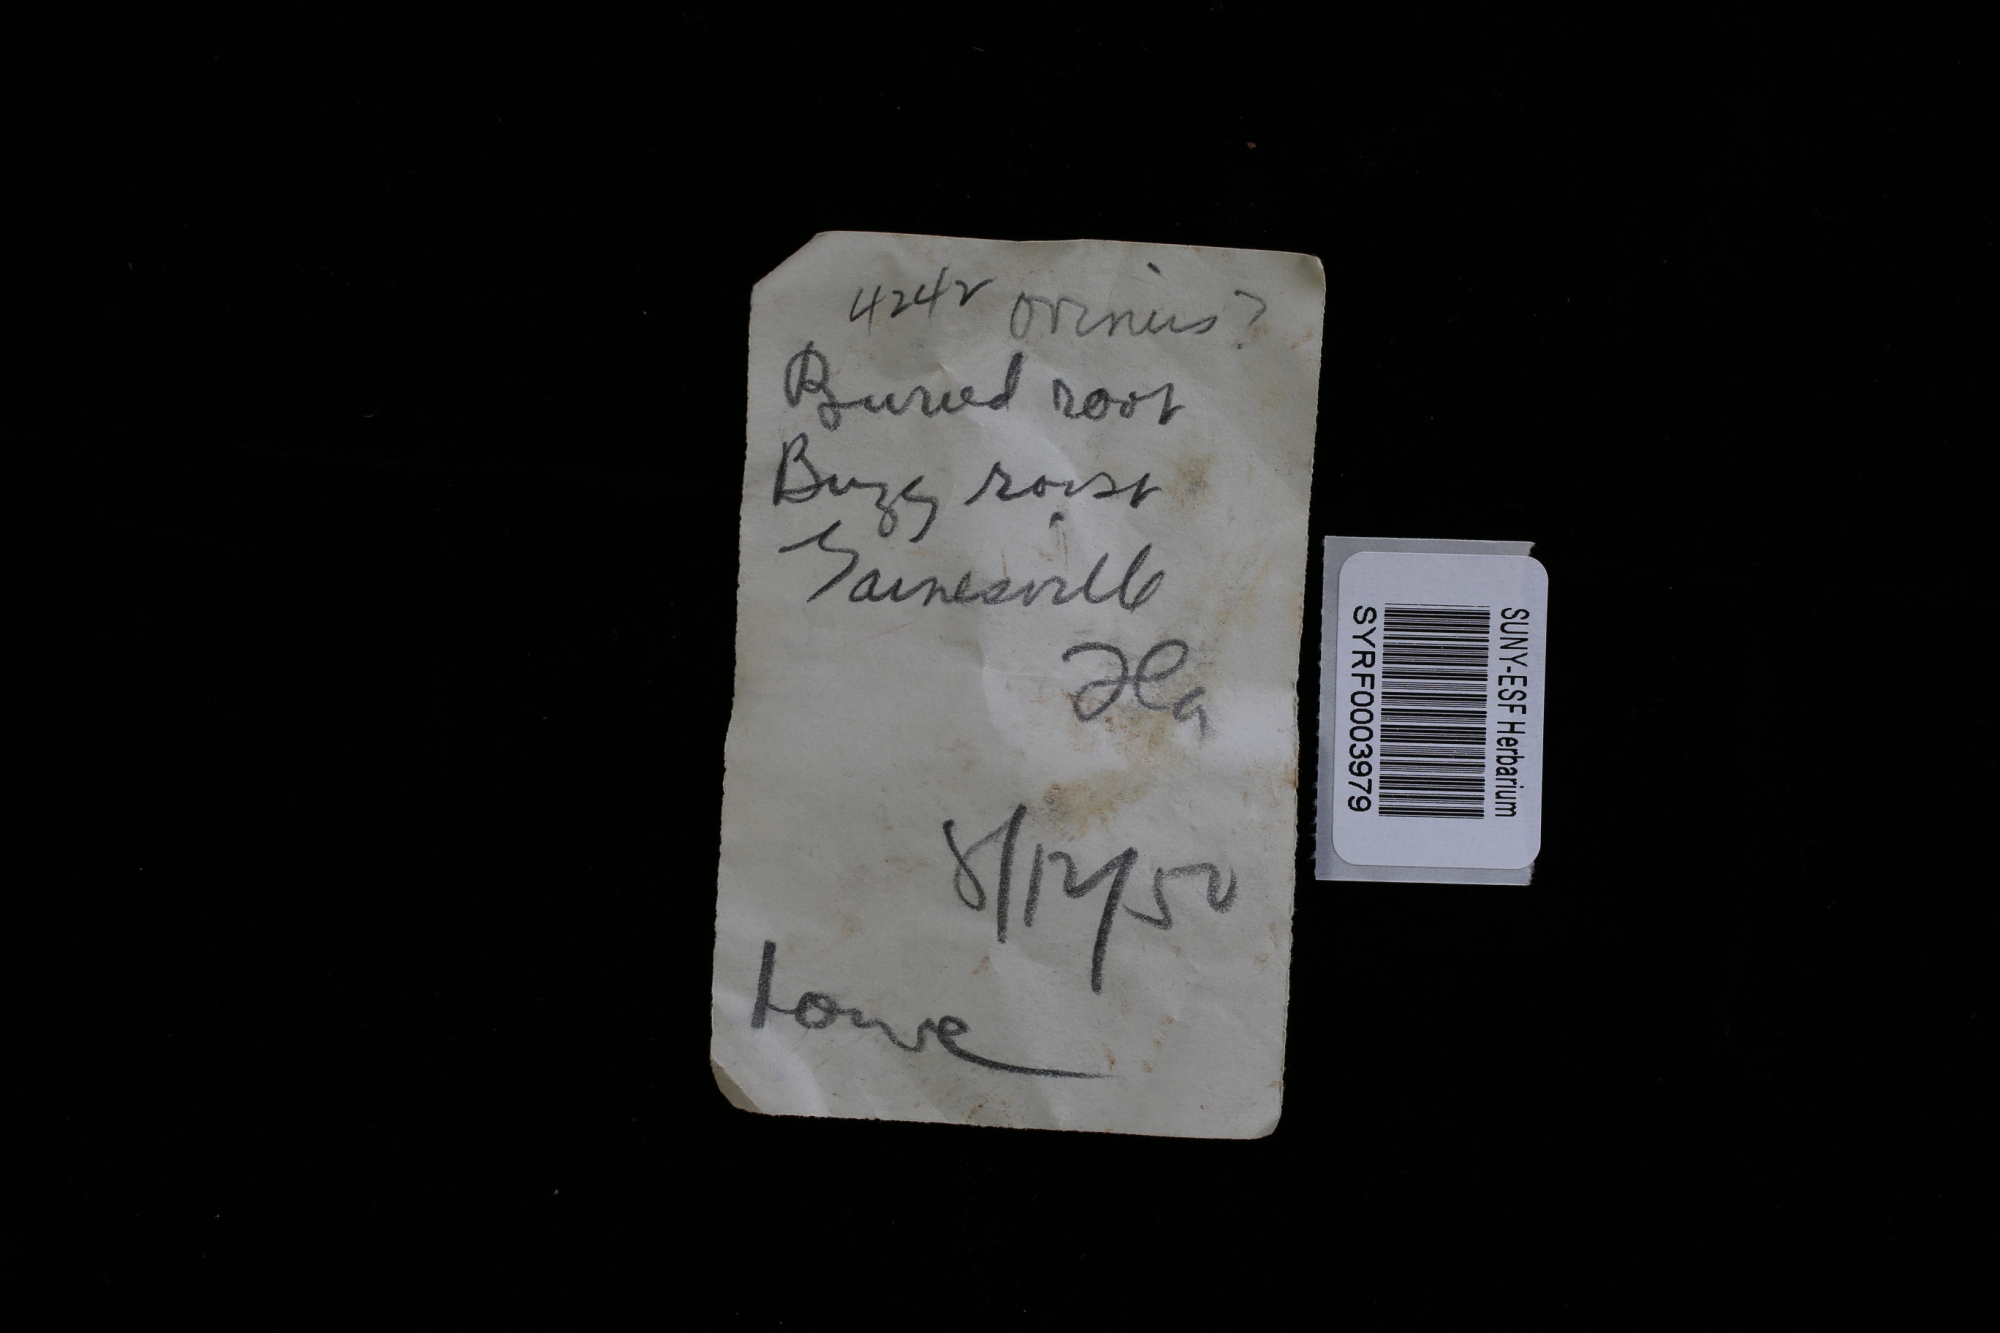 4242 ovinus?
Buried root
Buzz roost
Gainesville
Fla
8/12/50
Lowe
SUNY-ESF Herbarium
SYRF0003979